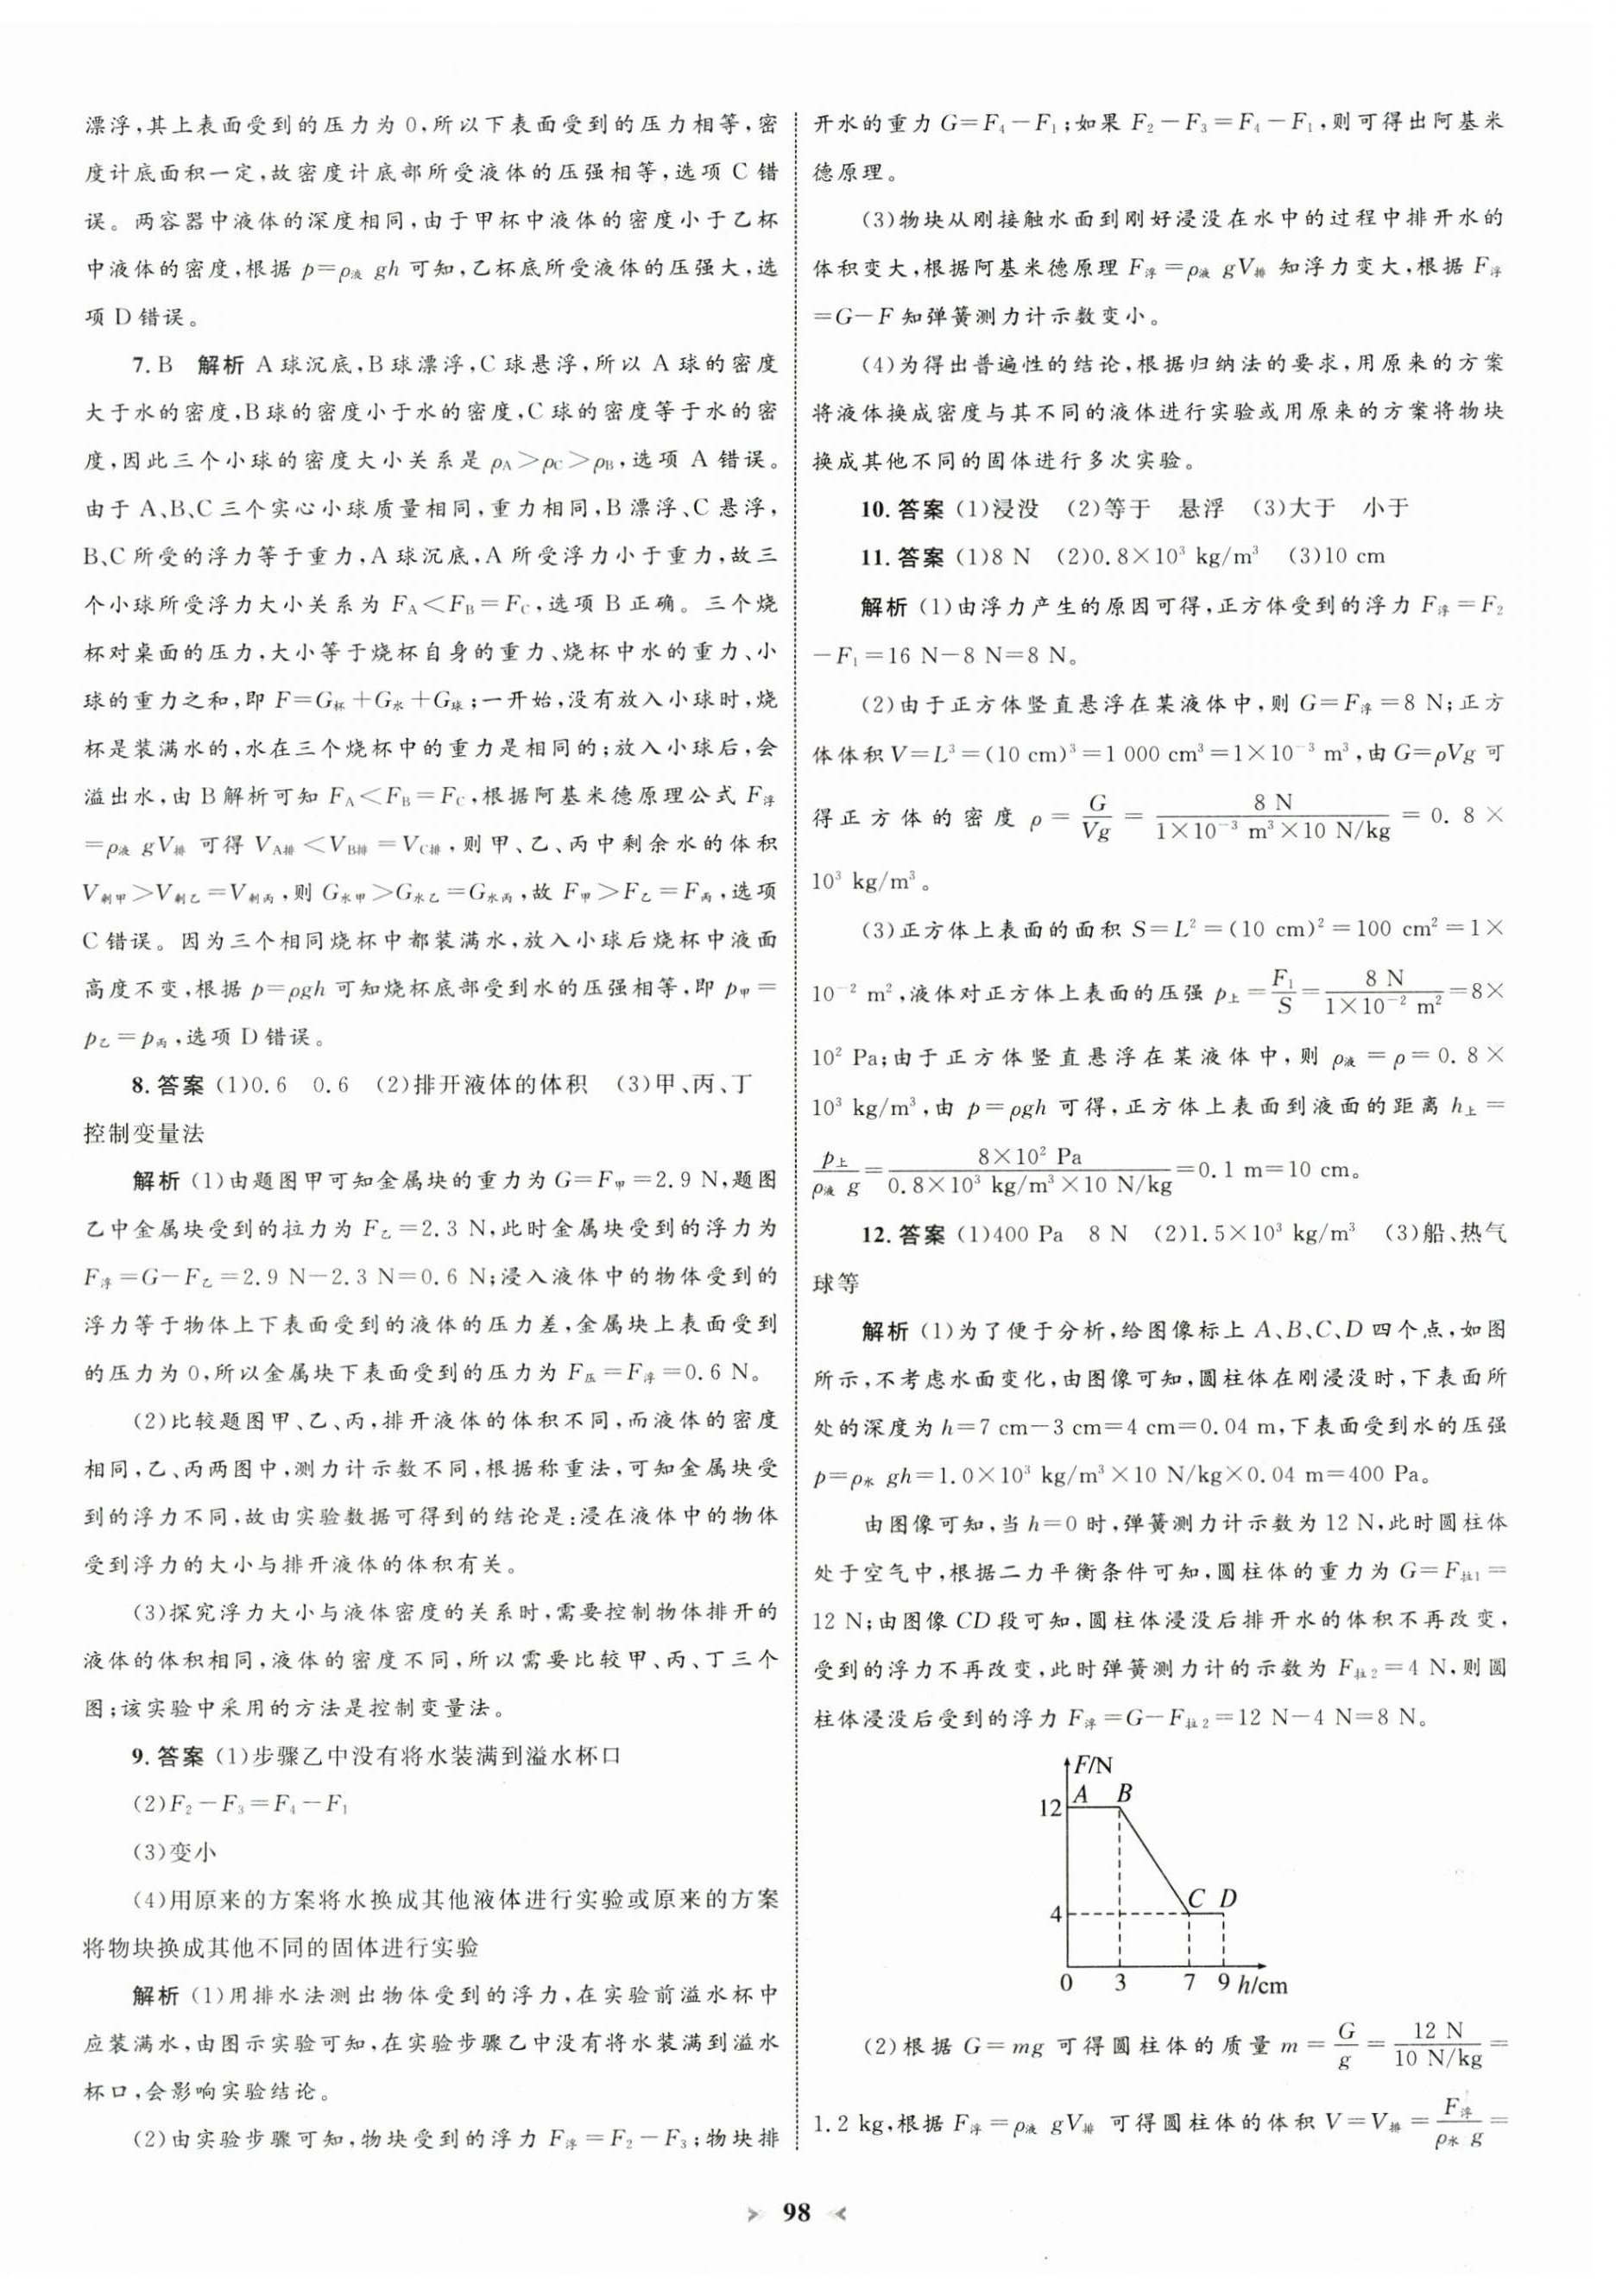 漂浮,其上表面受到的压力为 0,所以下表面受到的压力相等,密
度计底面积一定,故密度计底部所受液体的压强相等,选项 C 错
误。两容器中液体的深度相同,由于甲杯中液体的密度小于乙杯
中液体的密度,根据 p=ρ液 gh 可知,乙杯底所受液体的压强大,选
项 D 错误。
7. B 解析 A 球沉底,B 球漂浮,C 球悬浮,所以 A 球的密度
大于水的密度,B球的密度小于水的密度,C 球的密度等于水的密
度,因此三个小球的密度大小关系是 ρA>ρC>ρB,选项 A 错误。
由于 A、B、C 三个实心小球质量相同,重力相同,B 漂浮、C 悬浮,
B、C 所受的浮力等于重力,A 球沉底,A 所受浮力小于重力,故三
个小球所受浮力大小关系为 FA<FB=FC,选项 B 正确。三个烧
杯对桌面的压力,大小等于烧杯自身的重力、烧杯中水的重力、小
球的重力之和,即 F=G杯+G水+G球;一开始,没有放入小球时,烧
杯是装满水的,水在三个烧杯中的重力是相同的;放入小球后,会
溢出水,由 B 解析可知 FA<FB=FC,根据阿基米德原理公式 F浮
=ρ液 gV排 可得 VA排<VB排=VC排,则甲、乙、丙中剩余水的体积
V剩甲>V剩乙=V剩丙,则 G水甲>G水乙=G水丙,故 F甲>F乙=F丙,选项
C 错误。因为三个相同烧杯中都装满水,放入小球后烧杯中液面
高度不变,根据 p=ρgh 可知烧杯底部受到水的压强相等,即 p甲=
p乙=p丙,选项 D 错误。
8. 答案 (1)0.6 0.6 (2)排开液体的体积 (3)甲、丙、丁
控制变量法
解析 (1)由题图甲可知金属块的重力为 G=F甲=2.9 N,题图
乙中金属块受到的拉力为 F乙=2.3 N,此时金属块受到的浮力为
F浮=G-F乙=2.9 N-2.3 N=0.6 N;浸入液体中的物体受到的
浮力等于物体上下表面受到的液体的压力差,金属块上表面受到
的压力为 0,所以金属块下表面受到的压力为 F压=F浮=0.6 N。
(2)比较题图甲、乙、丙,排开液体的体积不同,而液体的密度
相同,乙、丙两图中,测力计示数不同,根据称重法,可知金属块受
到的浮力不同,故由实验数据可得到的结论是:浸在液体中的物体
受到浮力的大小与排开液体的体积有关。
(3)探究浮力大小与液体密度的关系时,需要控制物体排开的
液体的体积相同,液体的密度不同,所以需要比较甲、丙、丁三个
图;该实验中采用的方法是控制变量法。
9. 答案 (1)步骤乙中没有将水装满到溢水杯口
(2)F₂-F₃=F₄-F₁
(3)变小
(4)用原来的方案将水换成其他液体进行实验或原来的方案
将物块换成其他不同的固体进行实验
解析 (1)用排水法测出物体受到的浮力,在实验前溢水杯中
应装满水,由图示实验可知,在实验步骤乙中没有将水装满到溢水
杯口,会影响实验结论。
(2)由实验步骤可知,物块受到的浮力 F浮=F₂-F₃;物块排
开水的重力 G=F₄-F₁;如果 F₂-F₃=F₄-F₁,则可得出阿基米
德原理。
(3)物块从刚接触水面到刚好浸没在水中的过程中排开水的
体积变大,根据阿基米德原理 F浮=ρ液 gV排 知浮力变大,根据 F浮
=G-F 知弹簧测力计示数变小。
(4)为得出普遍性的结论,根据归纳法的要求,用原来的方案
将液体换成密度与其不同的液体进行实验或用原来的方案将物块
换成其他不同的固体进行多次实验。
10. 答案 (1)浸没 (2)等于 悬浮 (3)大于 小于
11. 答案 (1)8 N (2)0.8×10³ kg/m³ (3)10 cm
解析 (1)由浮力产生的原因可得,正方体受到的浮力 F浮=F₂
-F₁=16 N-8 N=8 N。
(2)由于正方体竖直悬浮在某液体中,则 G=F浮=8 N;正方
体体积 V=L³=(10 cm)³=1 000 cm³=1×10⁻³ m³,由 G=ρVg 可
得正方体的密度 ρ=G/Vg=8 N/(1×10⁻³ m³×10 N/kg)=0.8×
10³ kg/m³。
(3)正方体上表面的面积 S=L²=(10 cm)²=100 cm²=1×
10⁻² m²,液体对正方体上表面的压强 p上=F₁/S=8 N/(1×10⁻² m²)=8×
10² Pa;由于正方体竖直悬浮在某液体中,则 ρ液=ρ=0.8×
10³ kg/m³,由 p=ρgh 可得,正方体上表面到液面的距离 h上=
p上/(ρ液 g)=8×10² Pa/(0.8×10³ kg/m³×10 N/kg)=0.1 m=10 cm。
12. 答案 (1)400 Pa 8 N (2)1.5×10³ kg/m³ (3)船、热气
球等
解析 (1)为了便于分析,给图像标上 A、B、C、D 四个点,如图
所示,不考虑水面变化,由图像可知,圆柱体在刚浸没时,下表面所
处的深度为 h=7 cm-3 cm=4 cm=0.04 m,下表面受到水的压强
p=ρ水 gh=1.0×10³ kg/m³×10 N/kg×0.04 m=400 Pa。
由图像可知,当 h=0 时,弹簧测力计示数为 12 N,此时圆柱体
处于空气中,根据二力平衡条件可知,圆柱体的重力为 G=F拉1=
12 N;由图像 CD 段可知,圆柱体浸没后排开水的体积不再改变,
受到的浮力不再改变,此时弹簧测力计的示数为 F拉2=4 N,则圆
柱体浸没后受到的浮力 F浮=G-F拉2=12 N-4 N=8 N。
F/N
A B
12
C D
4
0 3 7 9 h/cm
(2)根据 G=mg 可得圆柱体的质量 m=G/g=12 N/(10 N/kg)=
1.2 kg,根据 F浮=ρ液 gV排 可得圆柱体的体积 V=V排=F浮/(ρ水 g)=
98